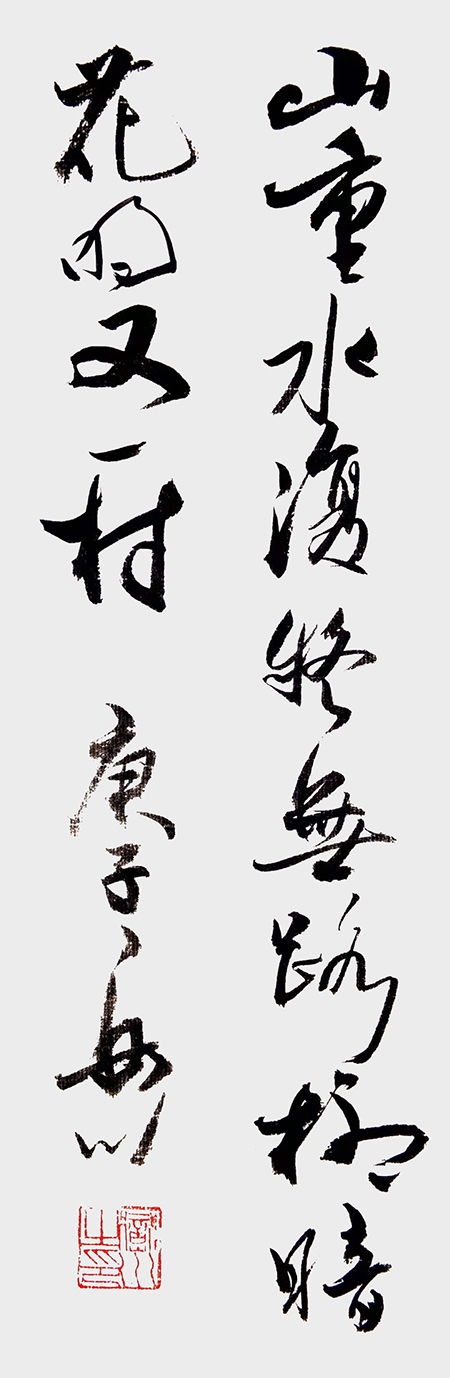 山重水復疑無路柳暗
花明又一村 庚子